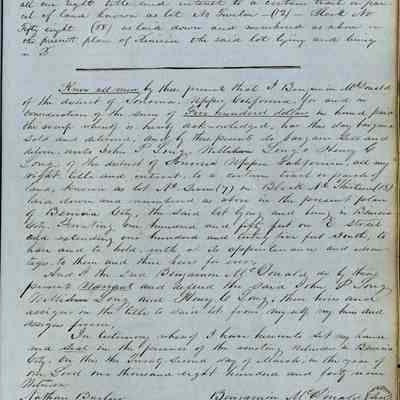 all our right title and interest to a certain tract or par
cel of land known as lot No Twelve (12) - Block No
Fifty eight (58) as laid down and numbered as above in
the present plan of Benicia the said lot lying and being
in D
Know all men by these presents that I Benjamin McDonald
of the district of Sonoma. Upper California for and in
consideration of the sum of Five hundred dollars in hand paid
the receipt whereof is hereby acknowledged, have this day bargained
sold and delivered, and by these presents do bargain sell and
deliver, unto John P Long, William Long & Henry C
Long, of the district of Sonoma Upper California, all my
right title and interest, to a certain tract or parcel of
land, known as lot No Seven (7) in Block No Thirteen (13)
laid down and numbered as above in the present plan
of Benicia City, the said lot lying and being in Benicia
City. Fronting one hundred and fifty feet on E Street
and extending one hundred and twenty five feet South, to
have and to hold, with all its appurtenances and advan
tages to them and their heirs for ever.
And I the said Benjamin McDonald do by these
presents Warrant and defend the said John P Long,
William Long and Henry C Long, their heirs and
assigns in the title to said lot from myself my heirs and
assigns forever.
In testimony whereof I have hereunto set my hand
and seal in the presence of the
City. On this the Twenty Second day of March, in the year of
our Lord one thousand eight hundred and forty nine
Witness
Nathan Barbour Benjamin McDonald